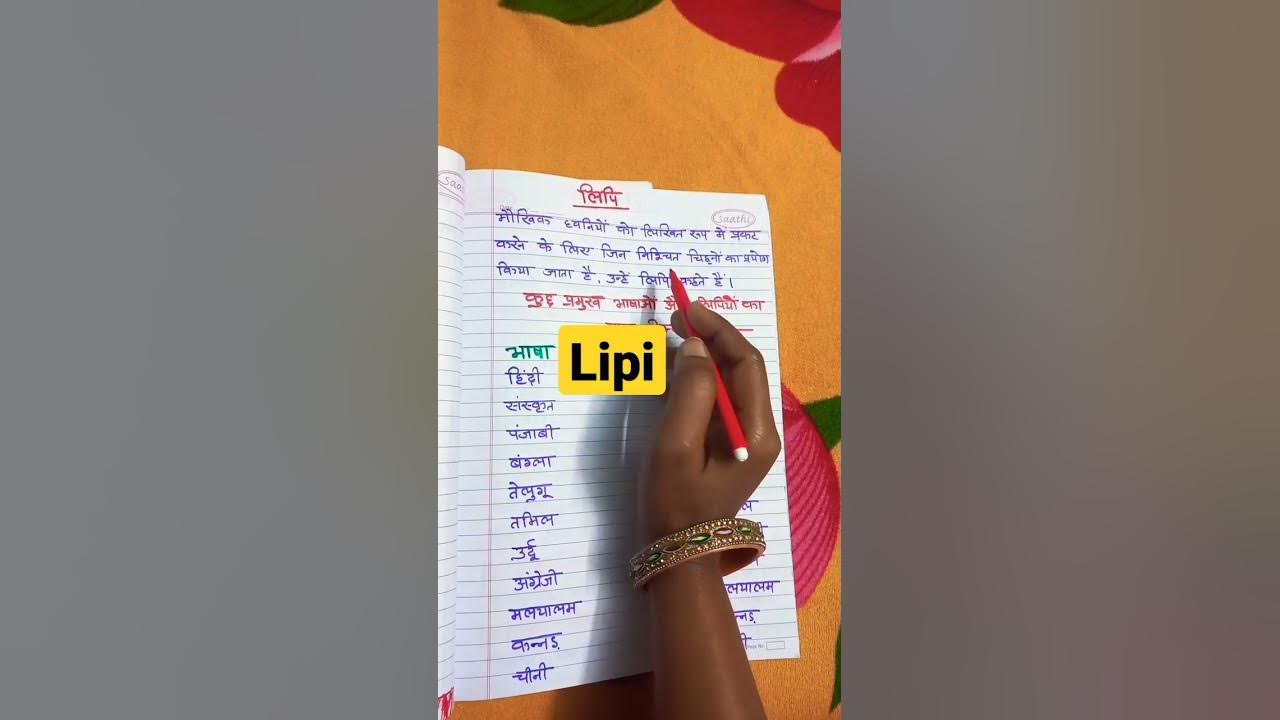 Saathi
लिपि
मौखिक ध्वनियों को लिखित रूप में प्रकट
करने के लिए जिन निश्चित चिह्नों का प्रयोग
किया जाता है, उन्हें लिपि कहते हैं।
कुछ प्रमुख भाषाओं लिपियों का
भाषा
Lipi
हिंदी
संस्कृत
पंजाबी
बंग्ला
तेलुगू
तमिल
उर्दू
अंग्रेजी
मलयालम लयालम
कन्नड़ न्नड़
चीनी
Page No.